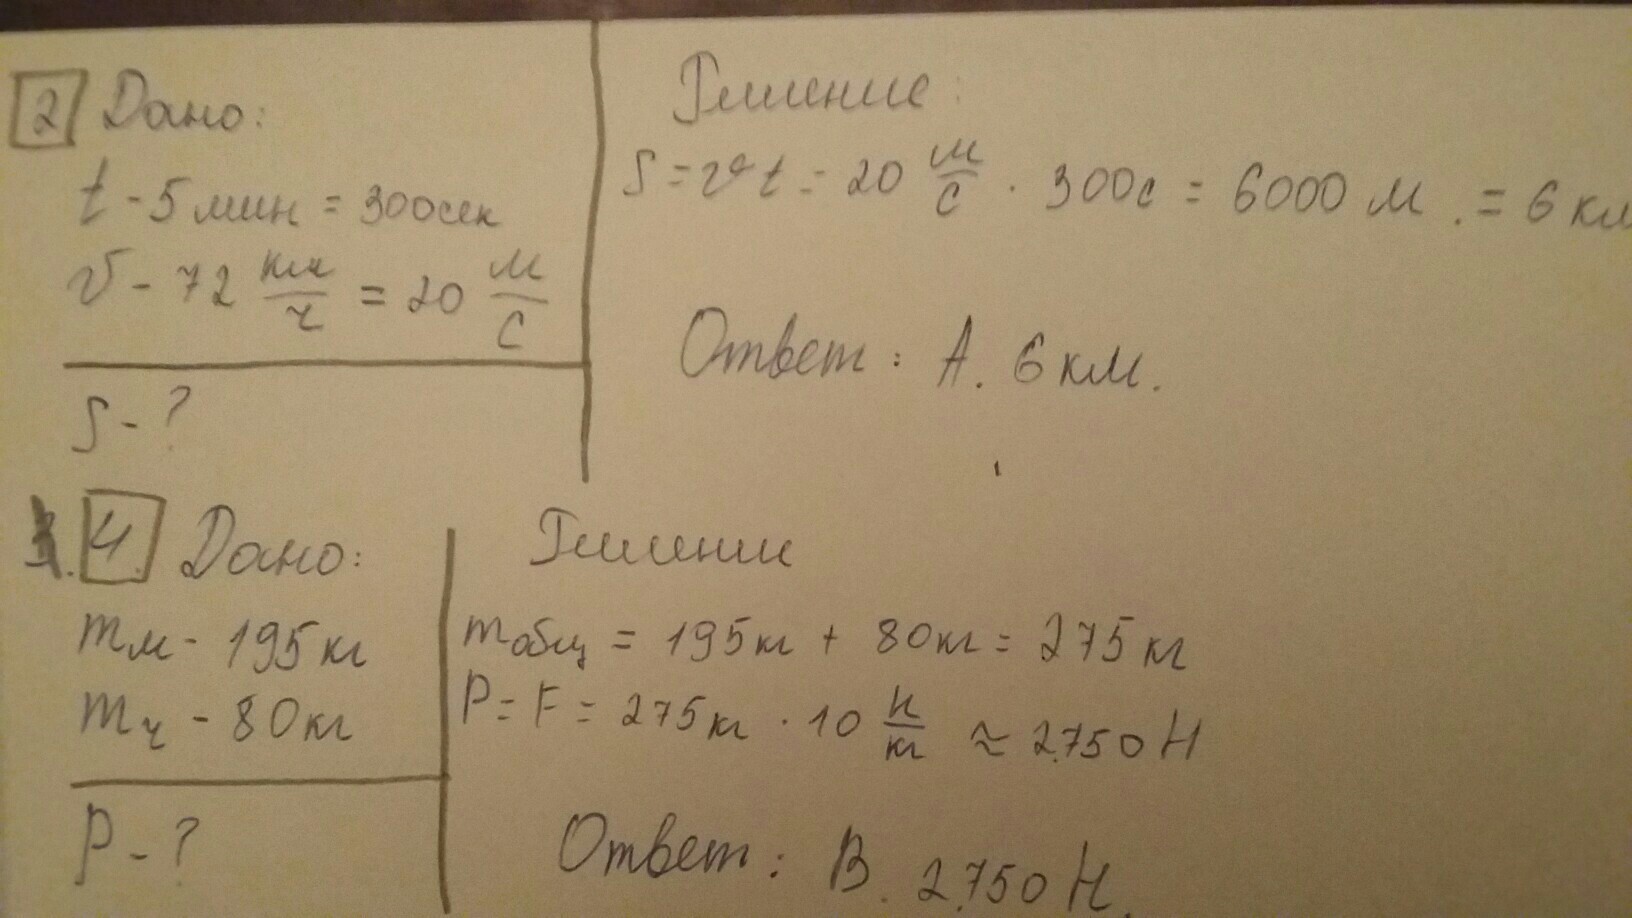 2 Дано:
t - 5 мин = 300сек
v - 72 км/ч = 20 м/с
S - ?
Решение:
S = vt = 20 м/с · 300с = 6000 м. = 6 км
Ответ: А. 6 км.
4 Дано:
mм - 195 кг
mч - 80 кг
P - ?
Решение
mобщ = 195 кг + 80 кг = 275 кг
P = F = 275 кг · 10 Н/кг ≈ 2.750 Н
Ответ: В. 2.750 Н.